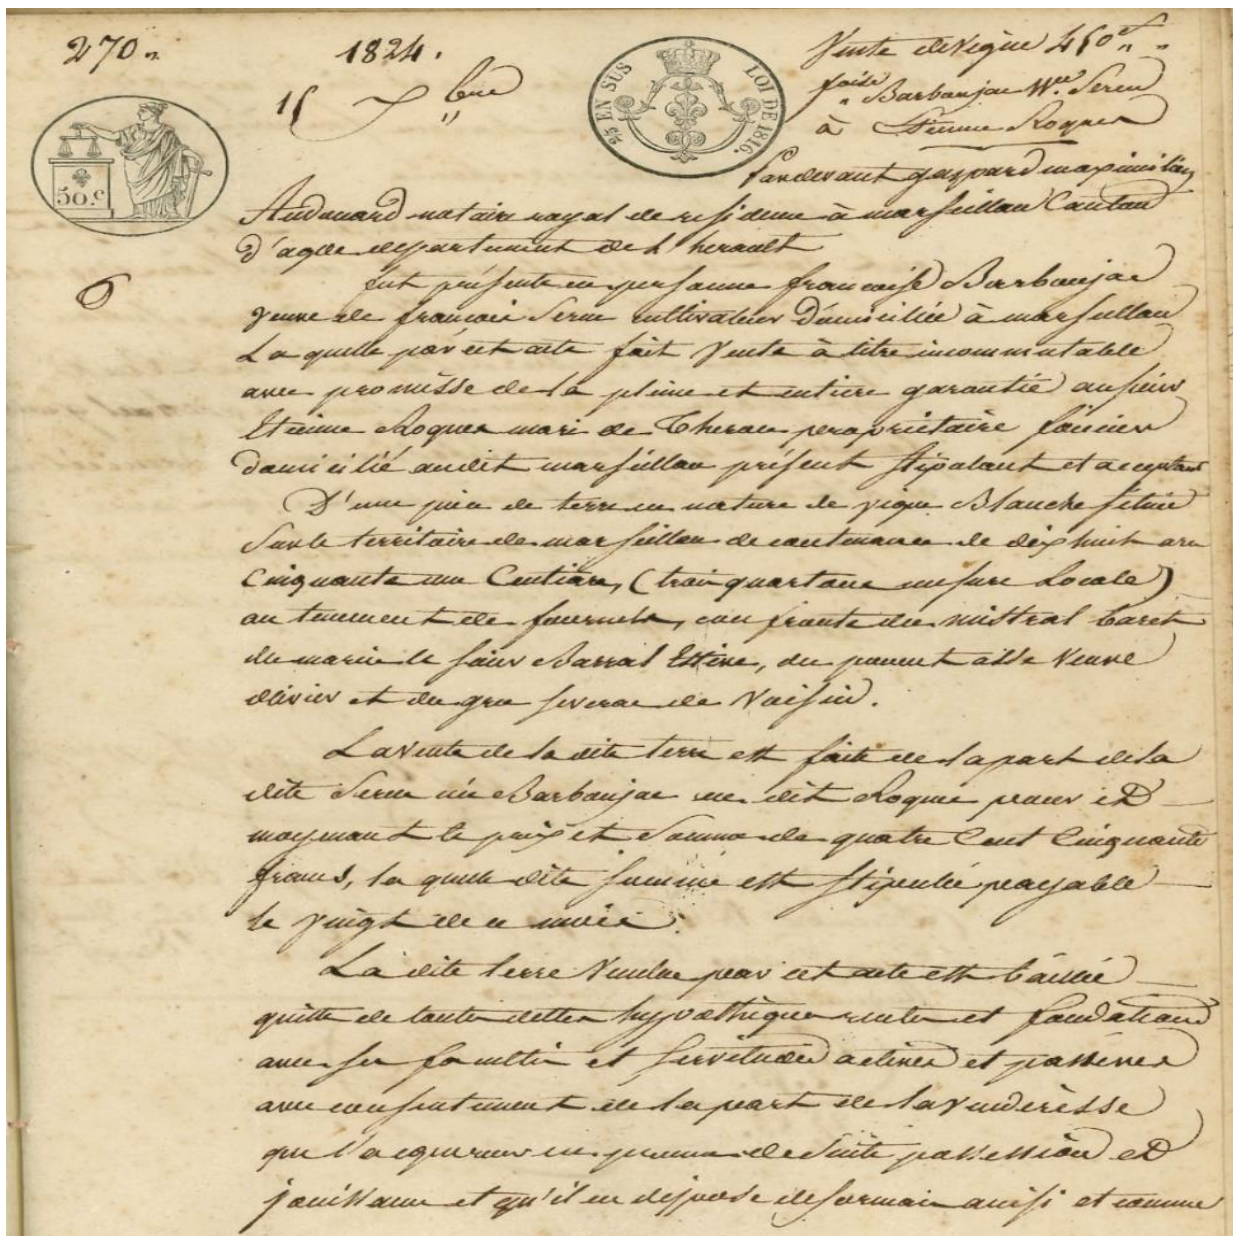 270.
1824.
15 7bre
Vente de vigne 450f
faite
Barbaujac Ve Serin
à Etienne Roques
25 EN SUS
LOI DE 1816.
50.c
Pardevant gaspard maximilien
Audouard notaire royal de residence à marseillan Canton
d'agde departement de L'herault
fut présente en personne francoise Barbaujac
veuve de francois Serin cultivateur domiciliée à marseillan
La quelle par cet acte fait Vente à titre incommutable
avec promesse de la pleine et entiere garantie au sieur
Etienne Roques mari de Therau proprietaire foncier
domicilié audit marseillan présent stipulant et acceptant
D'une piece de terre en nature de vigne Blanche située
Sur le territoire de marseillan de contenance de dix huit ares
Cinquante un Centiares, (trois quartons mesure Locale)
au tenement de fournels, confronte du mistral Carel
de marin le sieur Barral Estève, du ponent
veuve
olivier et du grec de Voisin.
La vente de la dite terre est faite de la part de la
dite Serin née Barbaujac au dit Roques pour et
moyenant le prix et Somme de quatre Cent Cinquante
francs, la quelle dite somme est stipulée payable
le vingt de ce mois.
La dite terre Vendue par cet acte est baillée
quitte de toutes dettes hypothèques rentes et fondations
avec ses facultés et servitudes actives et passives
avec consentement de la part de la venderesse
que l'acquereur en prenne de Suite possession et
jouissance et qu'il en dispose desormais ainsi et comme